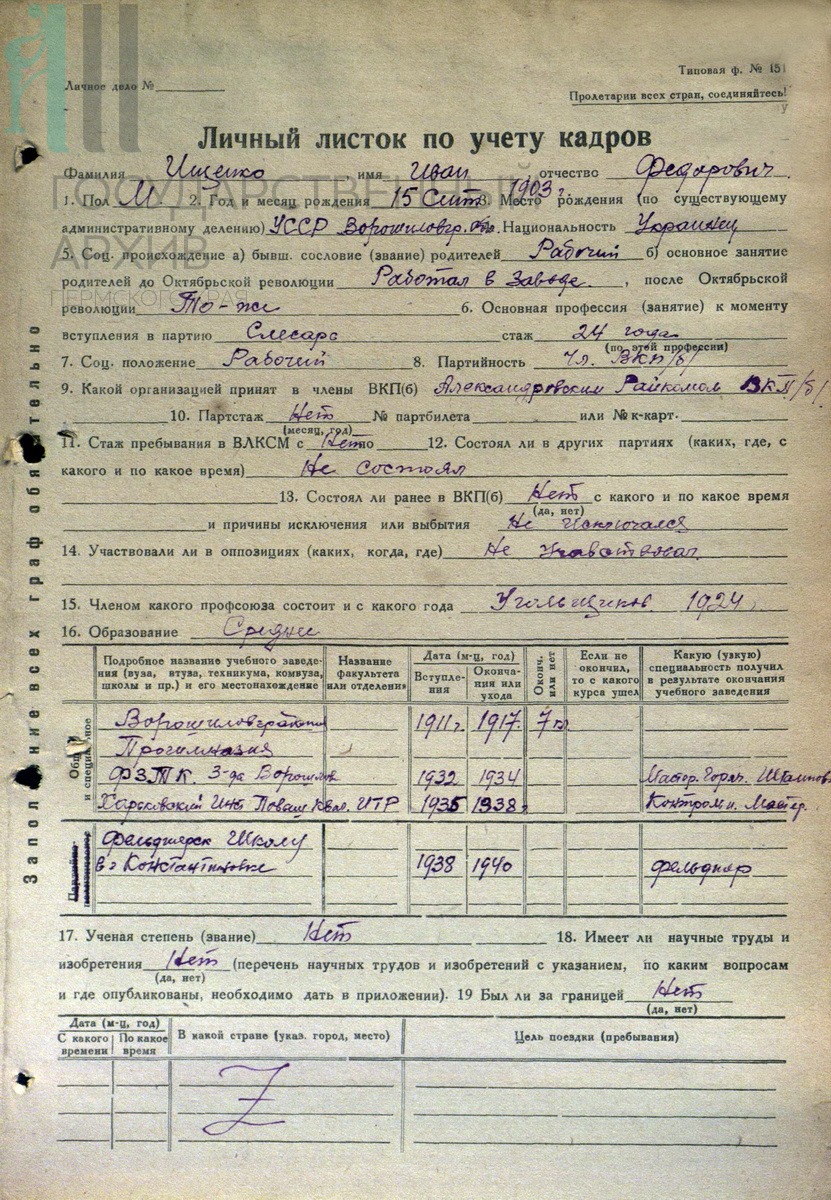 Типовая ф. № 151
Личное дело №
Пролетарии всех стран, соединяйтесь!
Личный листок по учету кадров
Фамилия Ищенко, имя Иван отчество Федорович.
ГОСУДАРСТВЕННЫЙ
1. Пол М. 2. Год и месяц рождения 15 Сент. 1903 г. 3. Место рождения (по существующему
административному делению) УССР Ворошиловгр. обл. Национальность Украинец
АРХИВ
5. Соц. происхождение а) бывш. сословие (звание) родителей Рабочий б) основное занятие
родителей до Октябрьской революции Работал в Заводе, после Октябрьской
ПЕРМСКОГО КРАЯ
революции То-же 6. Основная профессия (занятие) к моменту
вступления в партию Слесарь стаж 24 года
(по этой профессии)
7. Соц. положение Рабочий 8. Партийность Чл. ВКП/б/
9. Какой организацией принят в члены ВКП(б) Александровским Райкомом ВКП/б/
10. Партстаж Нет № партбилета или № к-карт.
(месяц, год)
11. Стаж пребывания в ВЛКСМ с Нет по 12. Состоял ли в других партиях (каких, где, с
какого и по какое время) Не состоял
13. Состоял ли ранее в ВКП(б) Нет с какого и по какое время
(да, нет)
и причины исключения или выбытия Не исключался
14. Участвовали ли в оппозициях (каких, когда, где) Не участвовал
15. Членом какого профсоюза состоит и с какого года Угольщиков 1924
16. Образование Средне
Подробное название учебного заведения (вуза, втуза, техникума, комвуза, школы и пр.) и его местонахождение
Название факультета или отделения
Дата (м-ц, год)
Вступления
Окончания или ухода
Оконч. или нет
Если не окончил, то с какого курса ушел
Какую (узкую) специальность получил в результате окончания учебного заведения
Общее и специальное
Ворошиловградская 1911 г. 1917 7 кл
Прогимназия
ФЗТК. З-да Ворошилов 1932 1934 Мастер. Горяч. Штампов
Харьковский Инст Повыш Квал. ИТР 1935 1938 г Контрольн. Мастер.
Фельдшерск Школу
в г Константиновке 1938 1940 фельдшер
17. Ученая степень (звание) Нет 18. Имеет ли научные труды и
изобретения Нет (перечень научных трудов и изобретений с указанием, по каким вопросам
(да, нет)
и где опубликованы, необходимо дать в приложении). 19 Был ли за границей Нет
(да, нет)
Дата (м-ц, год)
С какого времени
По какое время
В какой стране (указ. город, место)
Цель поездки (пребывания)
Z
Заполнение всех граф обязательно